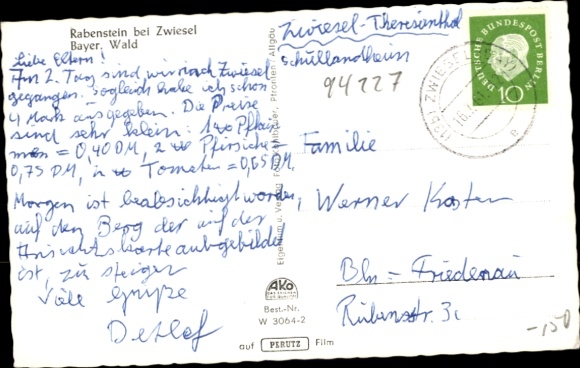 Rabenstein bei Zwiesel
Bayer. Wald
Liebe Eltern!
Am 2. Tag sind wir nach Zwiesel
gegangen. Sogleich habe ich schon
4 Mark ausgegeben. Die Preise
sind sehr klein: 1 Pflau
men = 0,40 DM, 2 Pfirsiche =
0,75 DM, Tomaten = 0,65 DM,
Morgen ist beabsichtigt worden,
auf den Berg der auf der
Ansichtskarte aubgebildet
ist, zu steigen
Viele Grüße
Detlef
Zwiesel-Theresienthal
Schullandheim
94227
DEUTSCHE BUNDESPOST BERLIN
10
ZWIESEL
Familie
Werner Kasten
Bln = Friedenau
Rubensstr. 31
-,50
Pfronten-Allgäu
AKO
Best.-Nr.
W 3064-2
auf PERUTZ Film